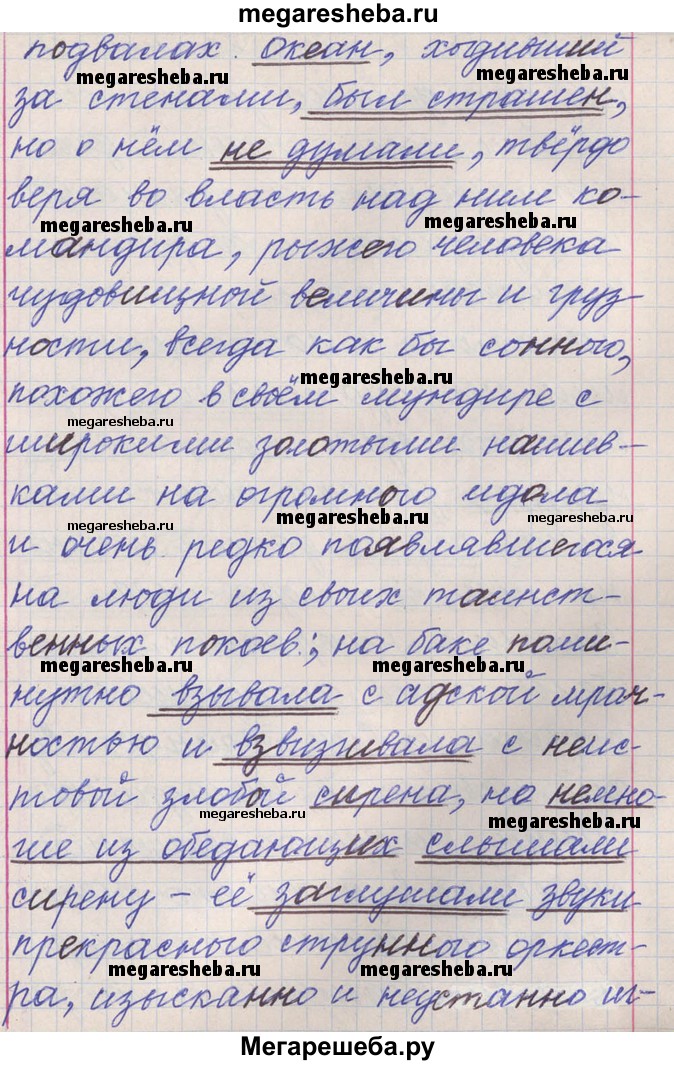 megaresheba.ru
подвалах. Океан, ходивший
megaresheba.ru
megaresheba.ru
за стенами, был страшен,
но о нём не думали, твёрдо
веря во власть над ним ко-
megaresheba.ru
megaresheba.ru
мандира, рыжего человека
чудовищной величины и груз-
ности, всегда как бы сонного,
megaresheba.ru
похожего в своём мундире с
megaresheba.ru
широкими золотыми нашив-
ками на огромного идола
megaresheba.ru
megaresheba.ru
megaresheba.ru
и очень редко появлявшегося
на люди из своих таинст-
венных покоев; на баке поми-
megaresheba.ru
megaresheba.ru
нутно взывала с адской мрач-
ностью и взвизгивала с неис-
товой злобой сирена, но немно-
megaresheba.ru
megaresheba.ru
гие из обедающих слышали
сирену – её заглушали звуки
прекрасного струнного оркест-
megaresheba.ru
megaresheba.ru
ра, изысканно и неустанно иг-
Мегарешеба.ру